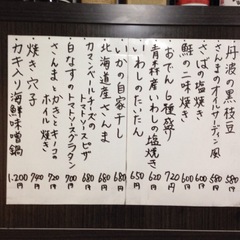 丹波の黒枝豆 580
さんまのオイルサーディン風 580
さばの塩焼き 600
鮭の二味焼き 600
おでん6種盛り 720
青森産いわしの塩焼き 620
いわしのたたん 650
いかの自家干し 680
北海道産さんま 680
カマンベールチーズのトマトソースピザ 680
白なすのトマトソースグラタン 700
さんまとかきとキーコの
ホイル焼き 720
焼き穴子 740
カキ入り海鮮味噌鍋 1.200